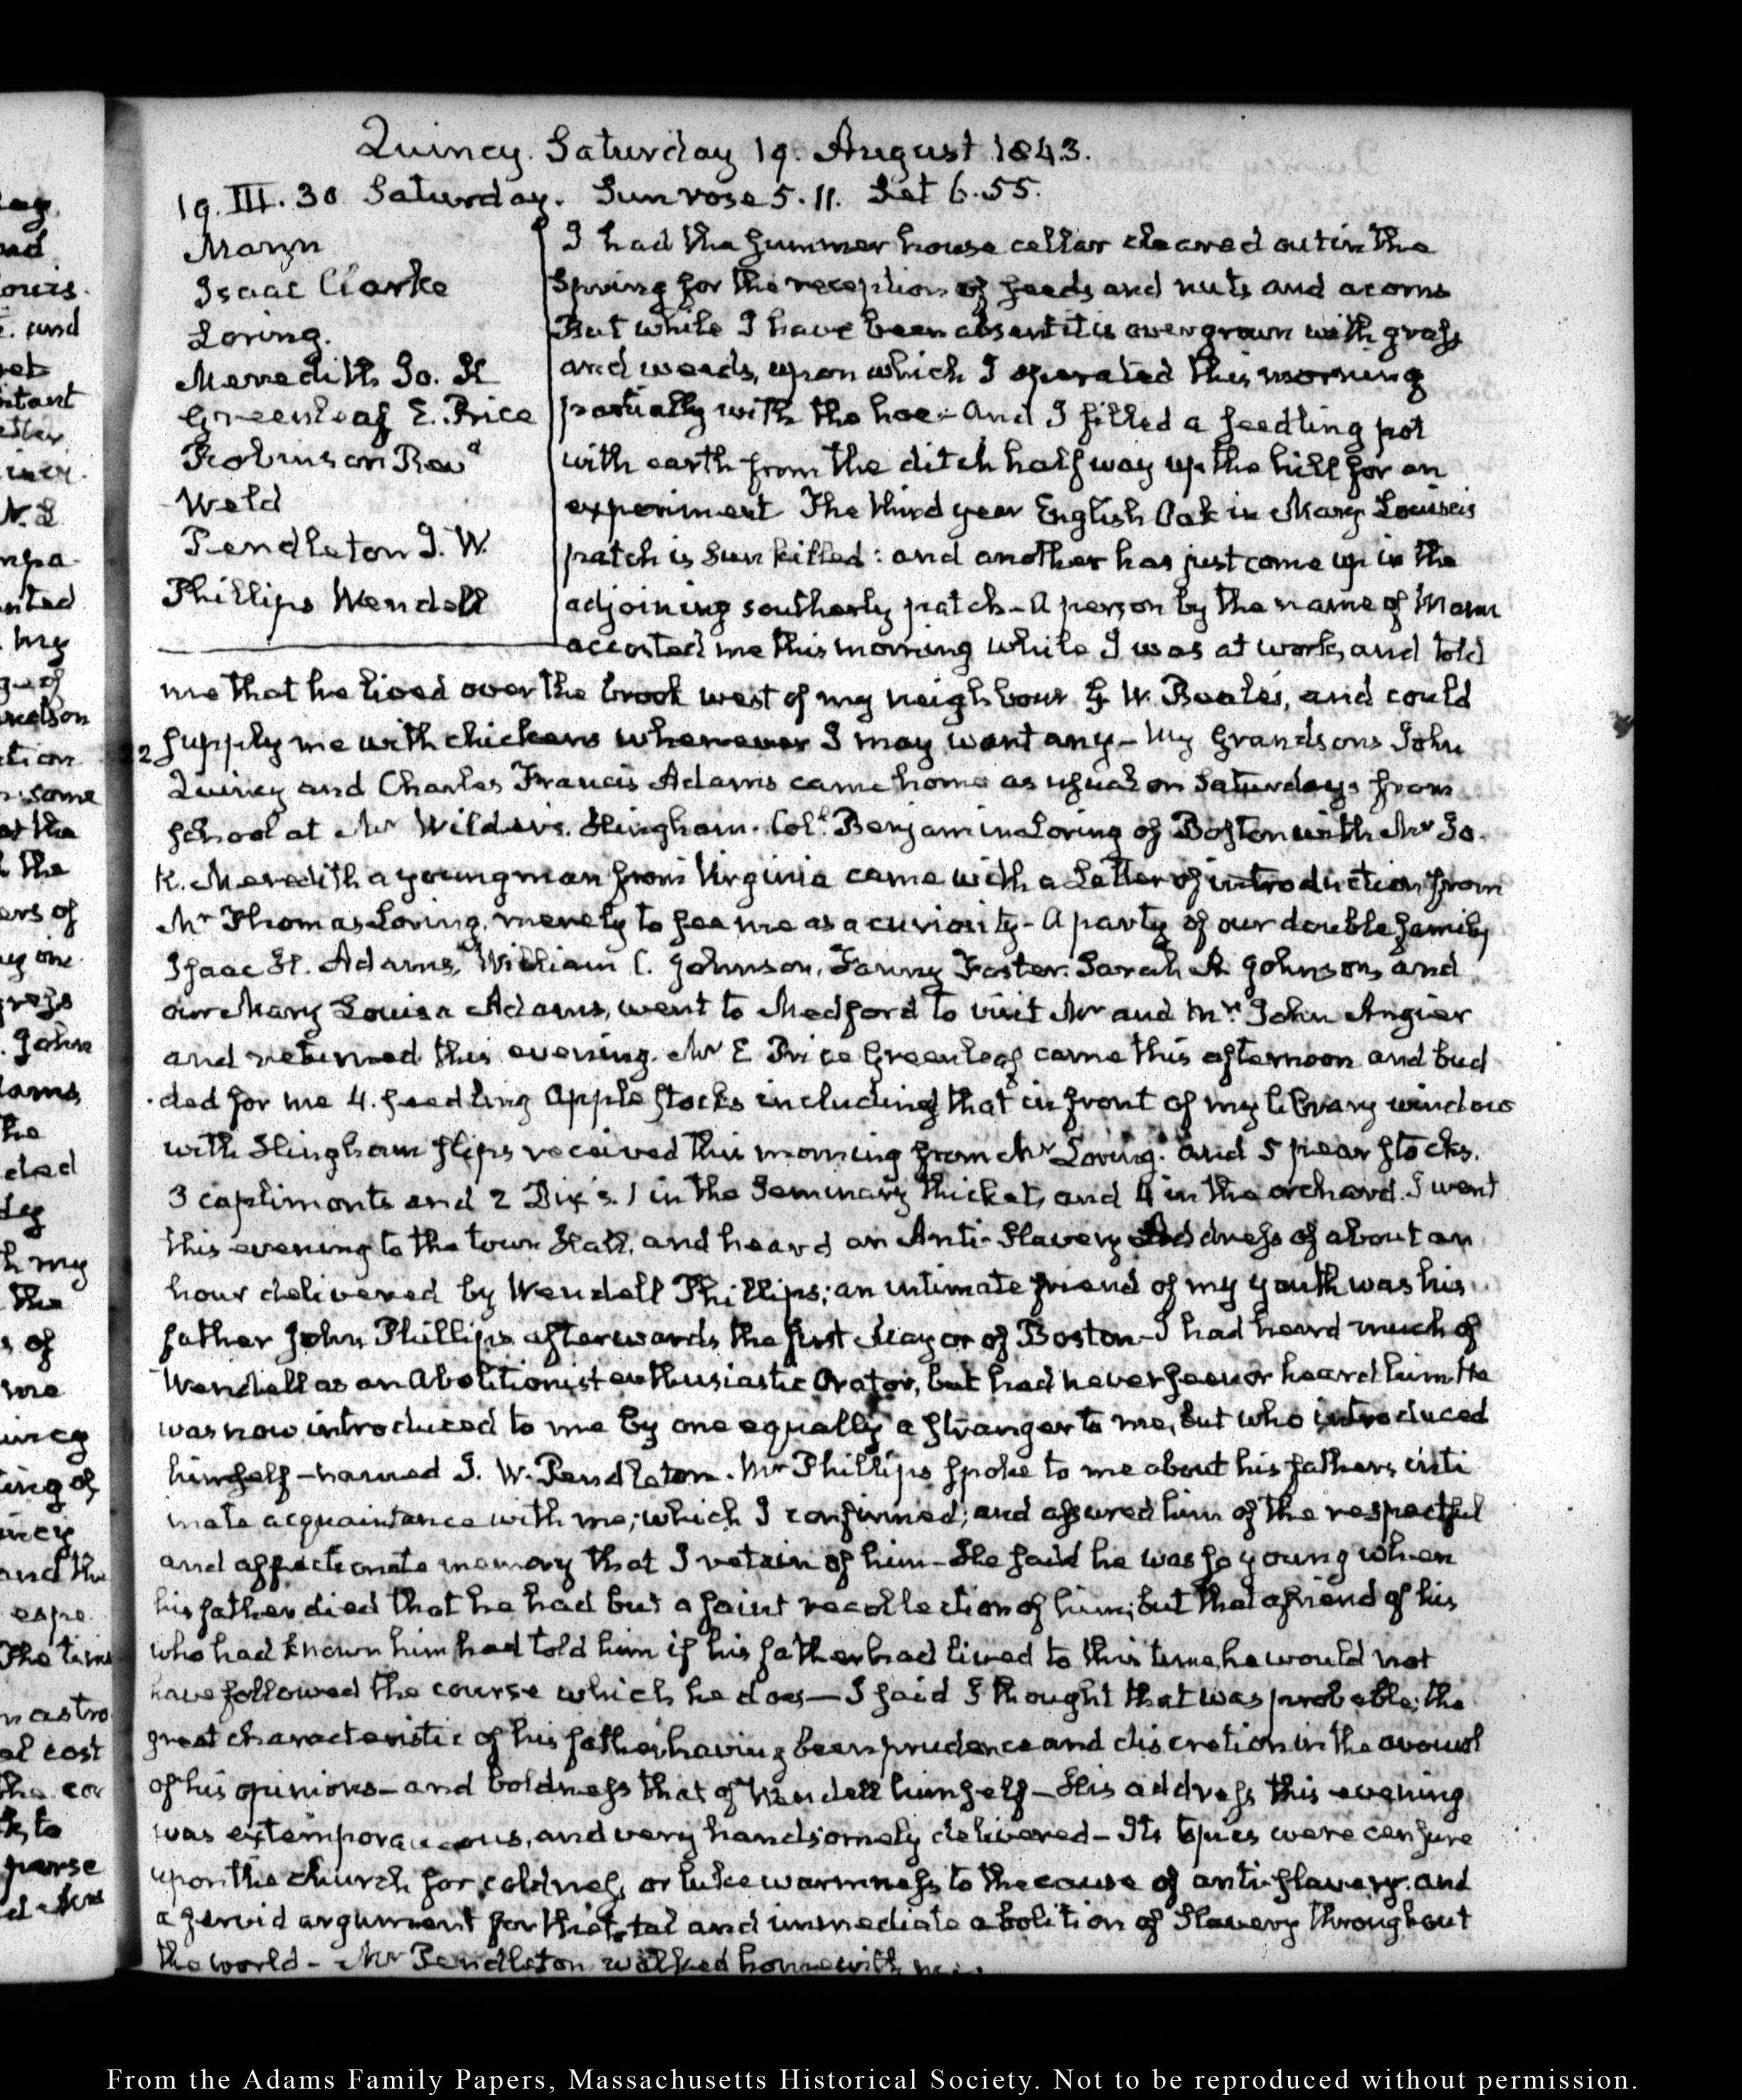 Quincy. Saturday 19. August 1843.
19. III. 30 Saturday. Sun rose 5.11. Set 6.55.
Mann
Isaac Clarke
Loring.
Meredith Jo. K
Greenleaf E. Price
Robinson Revd
Weld
Pendleton J. W.
Phillips Wendell
I had the summer house cellar cleared out in the
Spring for the reception of seeds and nuts and acorns
But while I have been absent it is overgrown with grass
and weeds, upon which I operated this morning
partially with the hoe - And I filled a seedling pot
with earth from the ditch half way up the hill for an
experiment. The third year English Oak in Mary Louisa's
patch is sun killed: and another has just come up in the
adjoining southerly patch - A person by the name of Mann
accosted me this morning while I was at work, and told
me that he lived over the brook west of my neighbour G W. Beale's, and could
supply me with chickens whenever I may want any - My Grandsons John
Quincy and Charles Francis Adams came home as usual on Saturdays from
School at Mr Wilder's. Hingham. Coll. Benjamin Loring of Boston with Mr Jo.
K. Meredith a young man from Virginia came with a Letter of introduction from
Mr Thomas Loring, merely to see me as a curiosity - A party of our double family
Isaac H. Adams, William C. Johnson, Fanny Foster. Sarah A. Johnson, and
our Mary Louisa Adams, went to Medford to visit Mr and Mrs. John Angier
and returned this evening. Mr E Price Greenleaf came this afternoon and bud
ded for me 4. seedling Apple stocks including that in front of my library window
with Hingham slips received this morning from Mr Loring. and 5 pear stocks.
3 capiimonts and 2 Dix's. 1 in the Seminary thicket, and 4 in the orchard. I went
this evening to the town Hall, and heard an Anti-Slavery Address of about an
hour delivered by Wendell Phillips; an intimate friend of my youth was his
father John Phillips afterwards the first Mayor of Boston - I had heard much of
Wendell as an Abolitionist enthusiastic Orator, but had never seen or heard him. He
was now introduced to me by one equally a stranger to me, but who introduced
himself - named J. W. Pendleton. Mr Phillips spoke to me about his fathers inti
mate acquaintance with me; which I confirmed; and assured him of the respectful
and affectionate memory that I retain of him - He said he was so young when
his father died that he had but a faint recollection of him; but that a friend of his
who had known him had told him if his father had lived to this time, he would not
have followed the course which he does — I said I thought that was probable; the
great characteristic of his father having been prudence and discretion in the avowal
of his opinions - and boldness that of Wendell himself - His address this evening
was extemporaneous, and very handsomely delivered - Its topics were censure
upon the church for coldness, or lukewarmness to the cause of anti-slavery. and
a fervid argument for the total and immediate abolition of Slavery throughout
the world - Mr Pendleton walked home with me.
From the Adams Family Papers, Massachusetts Historical Society. Not to be reproduced without permission.